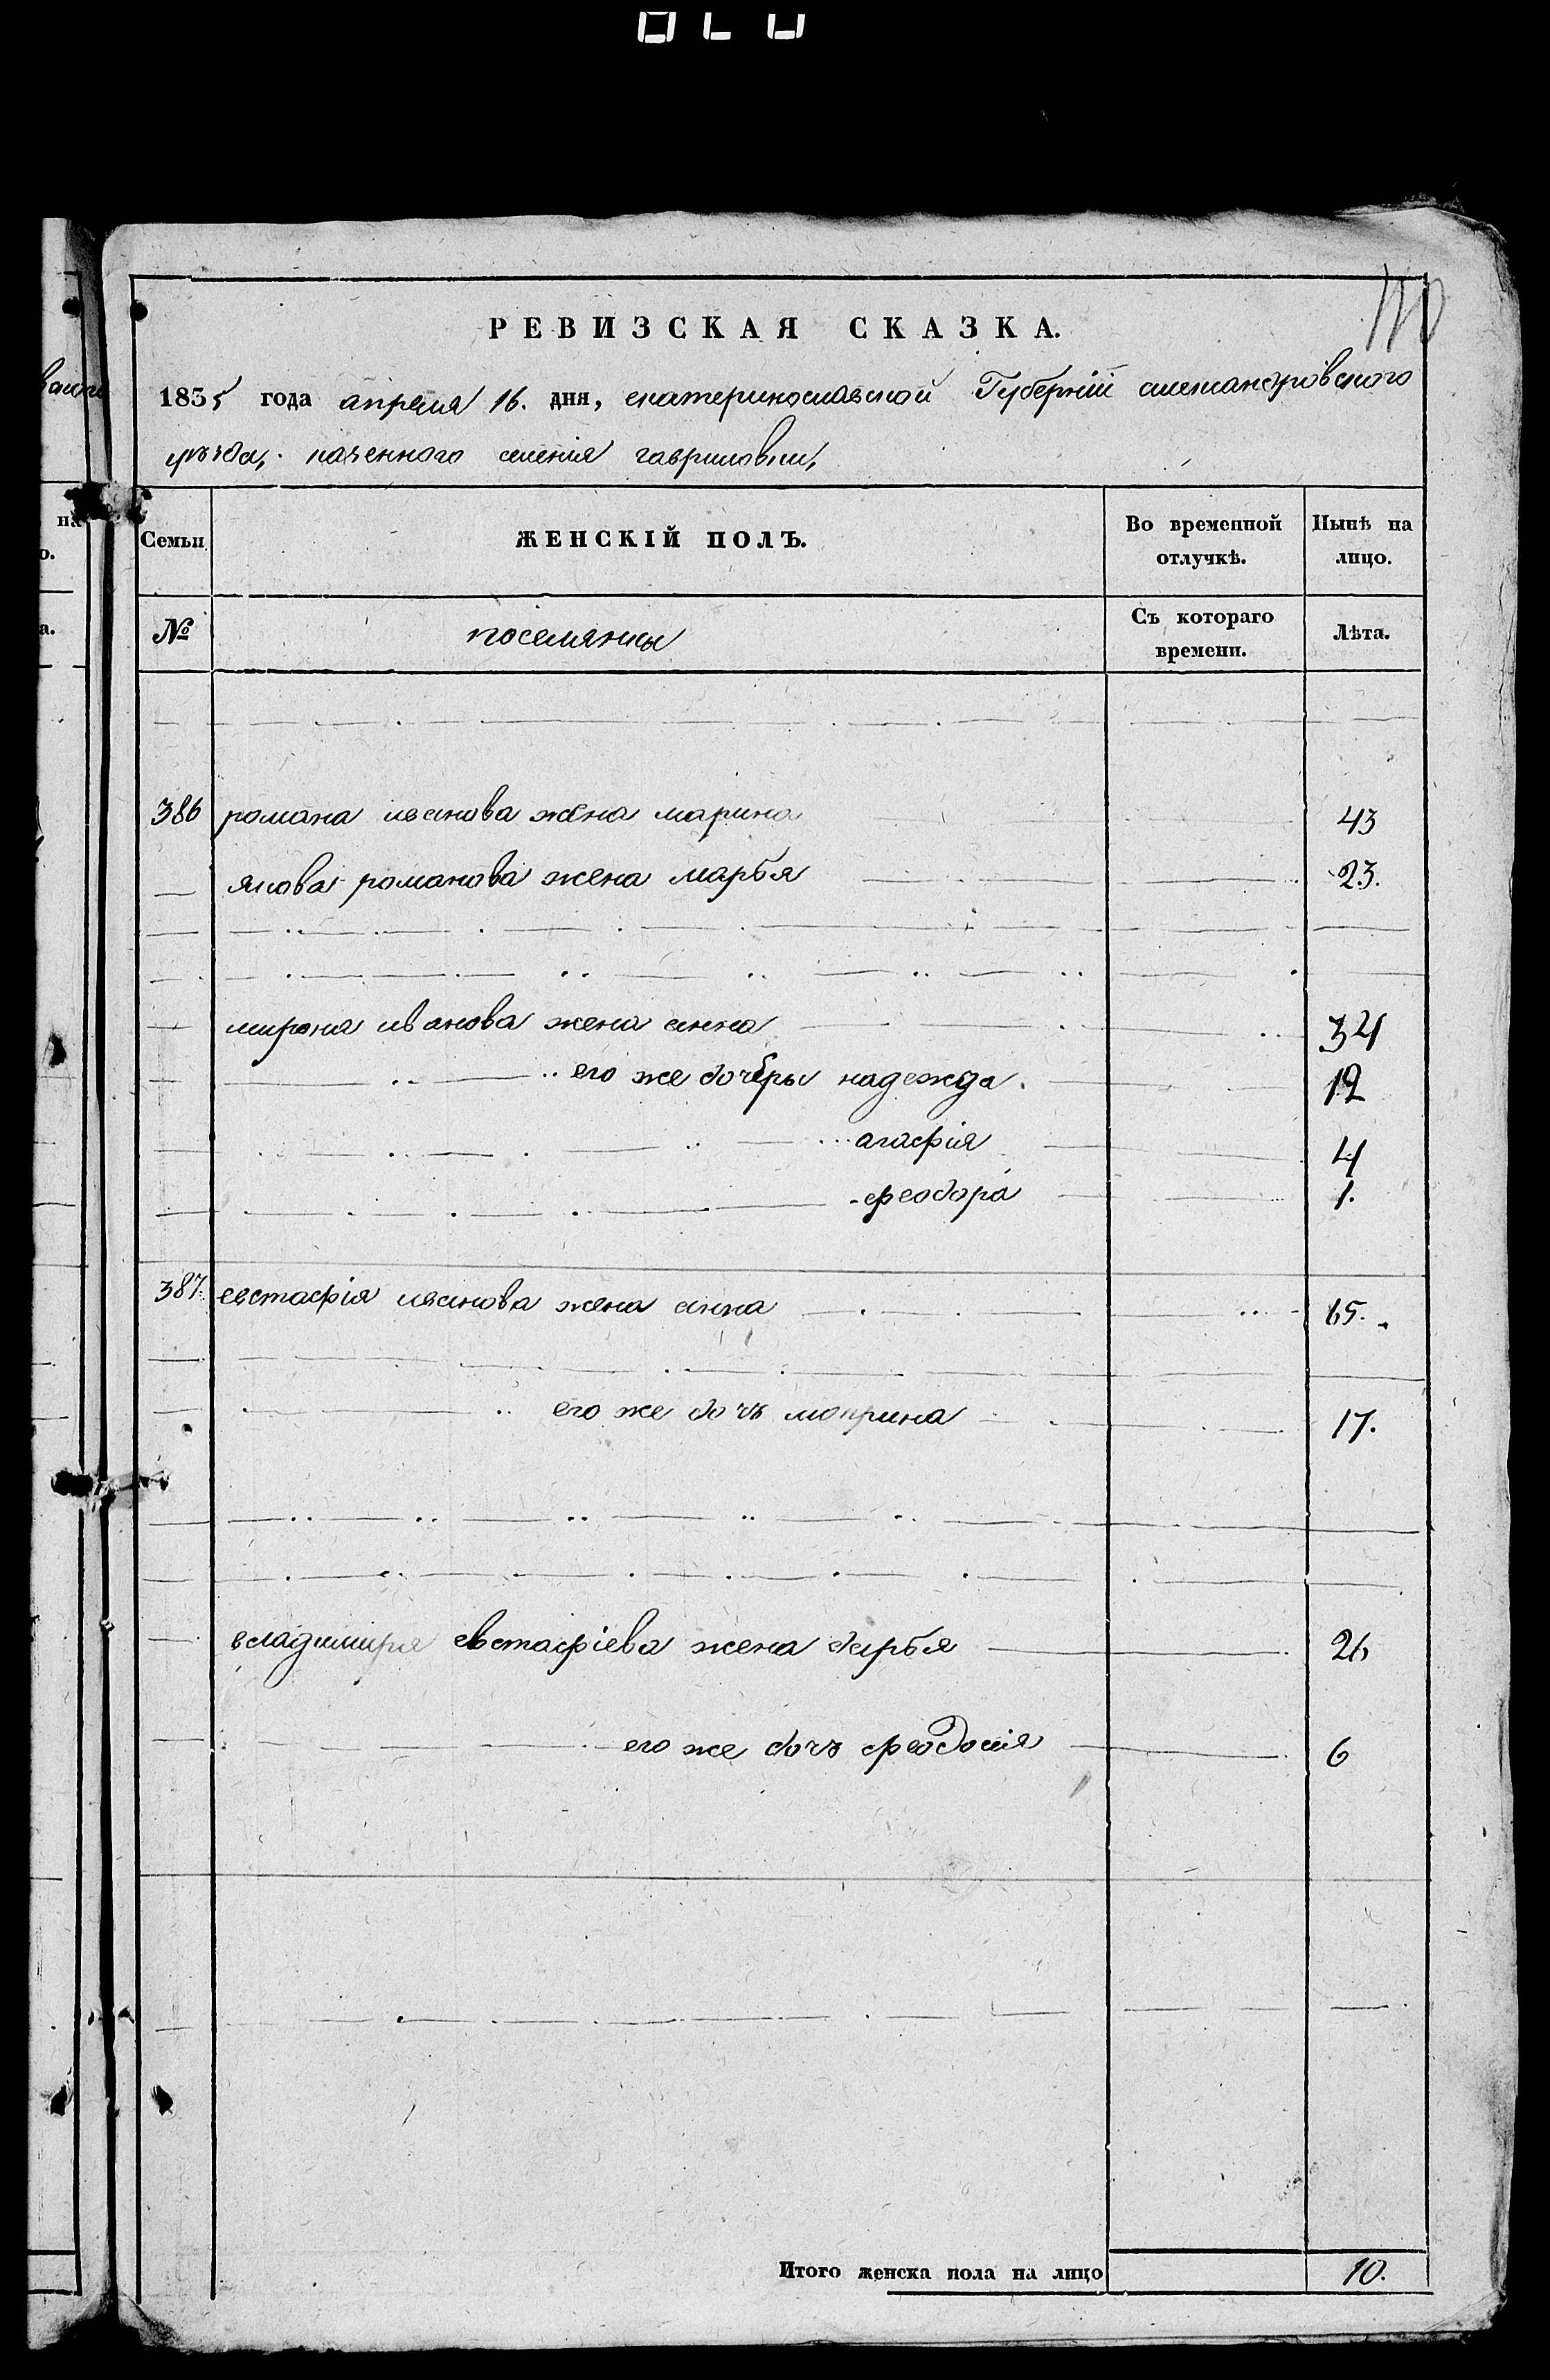 РЕВИЗСКАЯ СКАЗКА.
1835 года апреля 16. дня, екатеринославской Губерніи александровского
уѣзда, казенного селенія гавриловки,
Семьи ЖЕНСКІЙ ПОЛЪ. Во временной отлучкѣ. Нынѣ на лицо.
№ поселянки Съ котораго времени. Лѣта.
386 романа иванова жена марина 43
якова романова жена марѳа 23.
мирона иванова жена анна 34
его же дочери надежда. 12
агафія 4
феодора 1.
387. евстафія иванова жена анна 65.
его же дочь мокрина 17.
владимира евстафіева жена дарья 26
его же дочь феодосія 6
Итого женска пола на лицо 10.